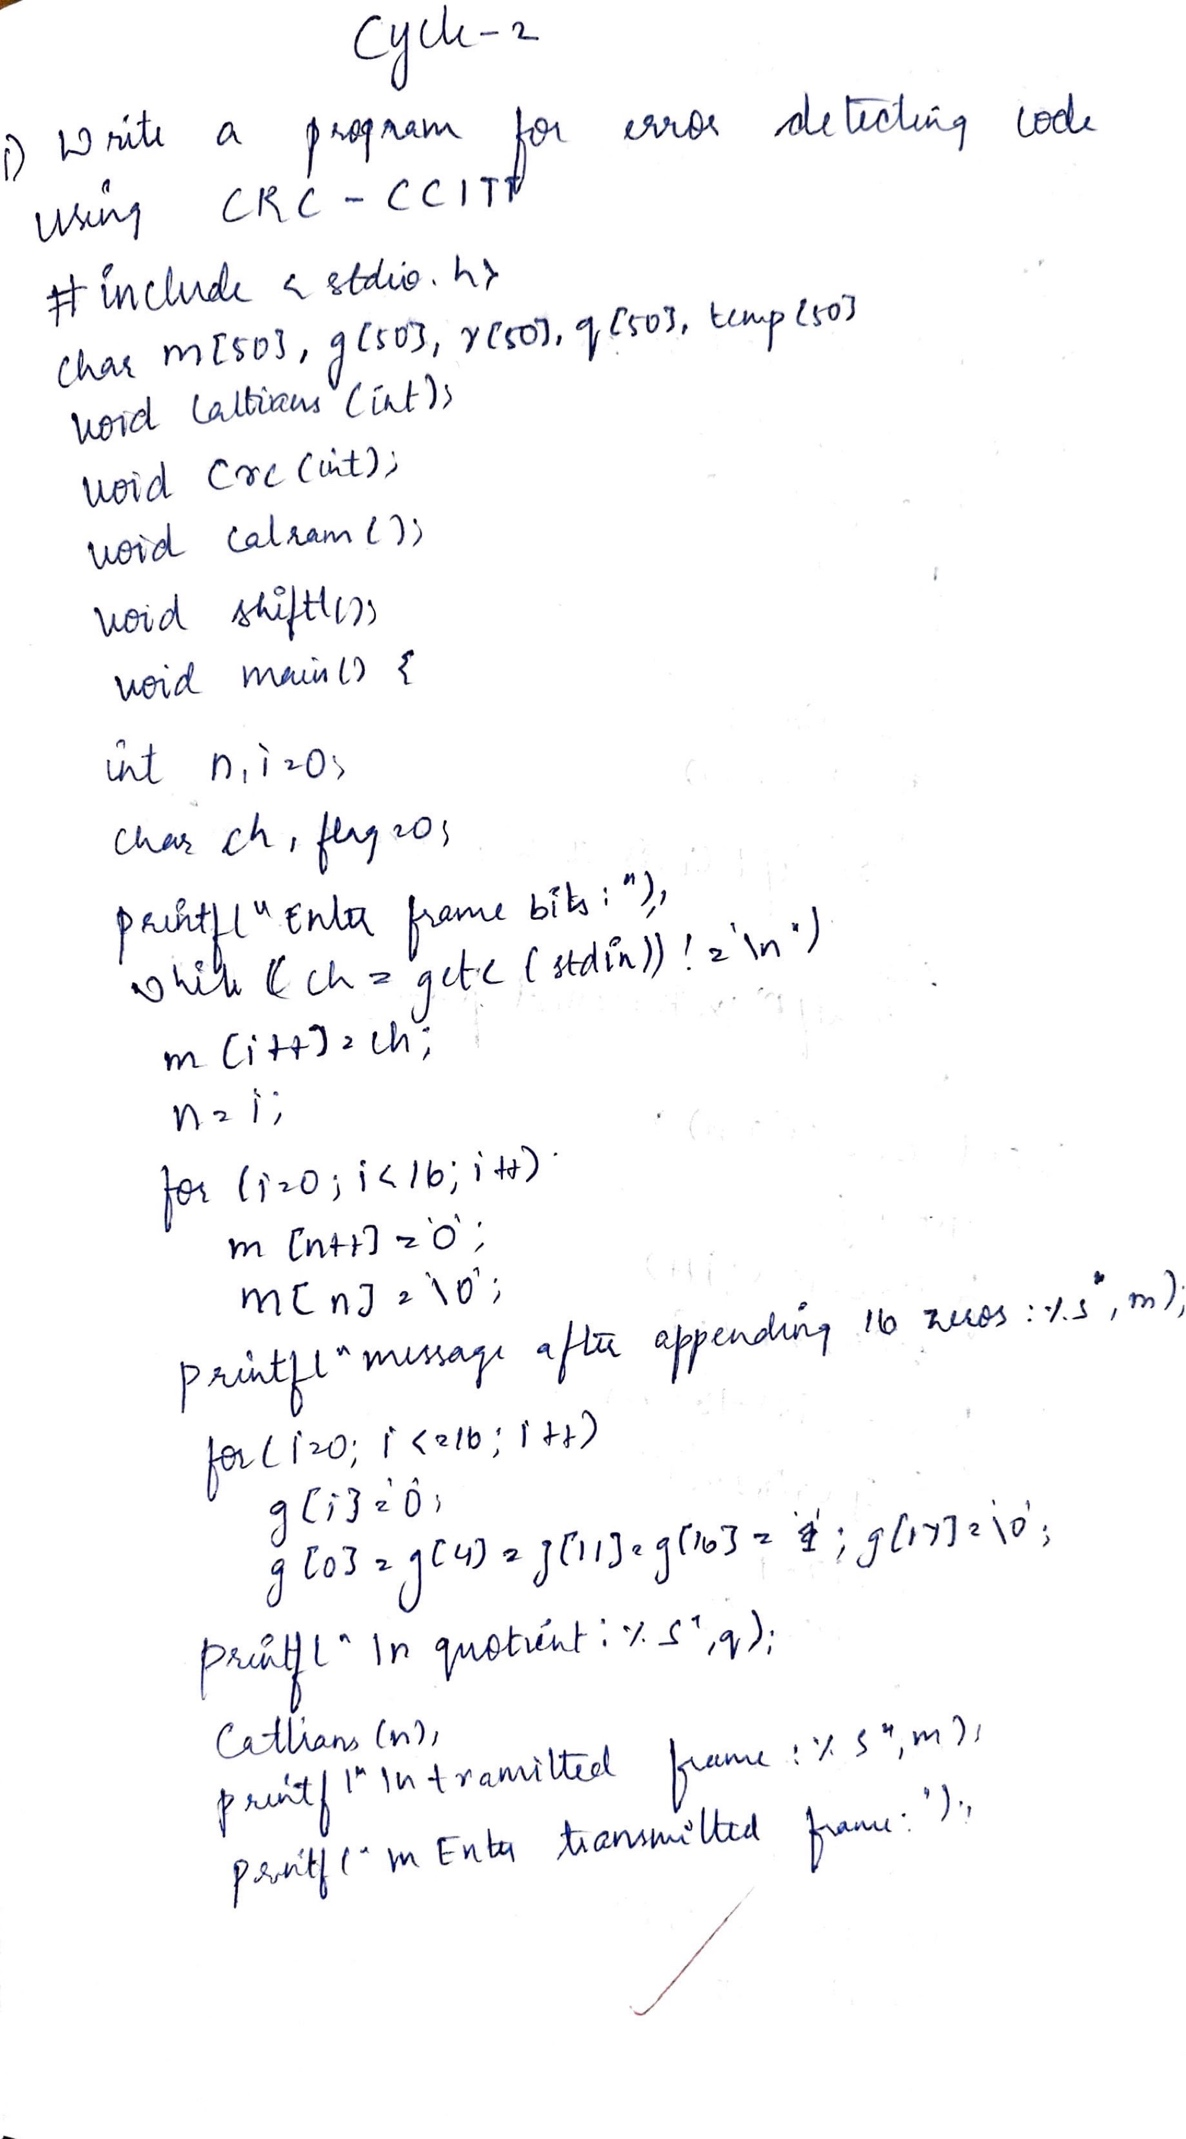 Cycle-2
1) Write a program for error detecting code
using CRC - CCITT
#include <stdio.h>
char m[50], g[50], r[50], q[50], temp[50]
void caltrans (int);
void crc (int);
void calram ();
void shiftl();
void main() {
int n, i=0;
char ch, flag=0;
printf("Enter frame bits : ");
while ((ch = getc (stdin)) != '\n')
m [i++] = ch;
n = i;
for (i=0; i<16; i++)
m [n++] = '0';
m[n] = '\0';
printf("message after appending 16 zeros : %s", m);
for(i=0; i<=16; i++)
g[i] = '0';
g[0] = g[4] = g[11] = g[16] = '1'; g[17] = '\0';
printf("\n quotient : %s", q);
Caltrans (n);
printf("\n tramitted frame : %s", m);
printf("\n Enter transmitted frame: ");